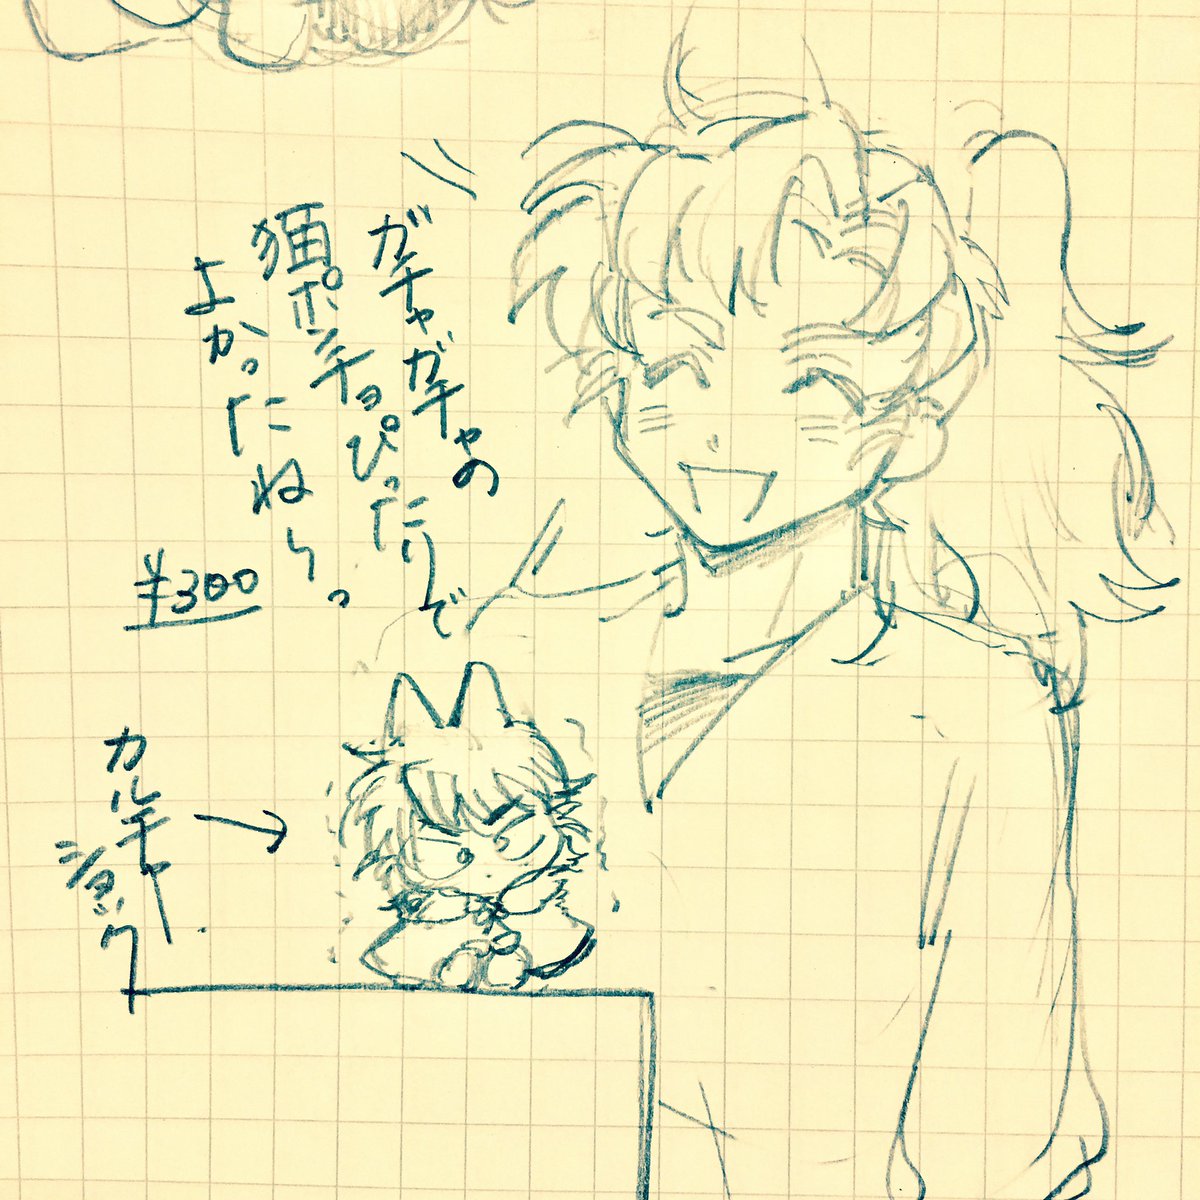 ガチャガチャの
猫ポンチョぴったりで
よかったねーっ
¥300
カルチャー
ショック